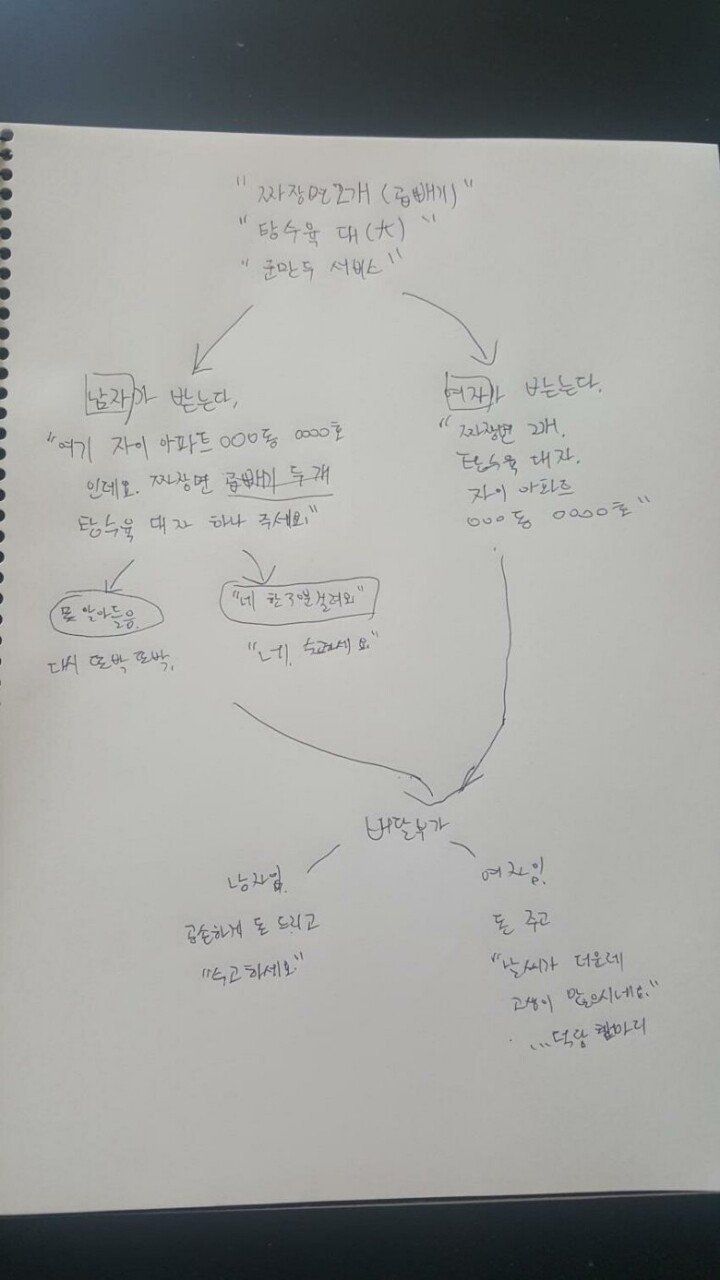 "짜장면 2개 (곱빼기)"
"탕수육 대(大)"
"군만두 서비스"
남자가 받는다.
"여기 자이 아파트 000동 0000호
인데요. 짜장면 곱빼기 두개
탕수육 대자 하나 주세요"
여자가 받는다.
"짜장면 2개.
탕수육 대자.
자이 아파트
000동 0000호"
못 알아들음.
다시 또박또박.
"네 한 30분걸려요"
"네. 수고하세요."
배달부가
남자임.
공손하게 돈 드리고
"수고하세요"
여자임.
돈 주고
"날씨가 더운데
고생이 많으시네요."
...덕담 한마디